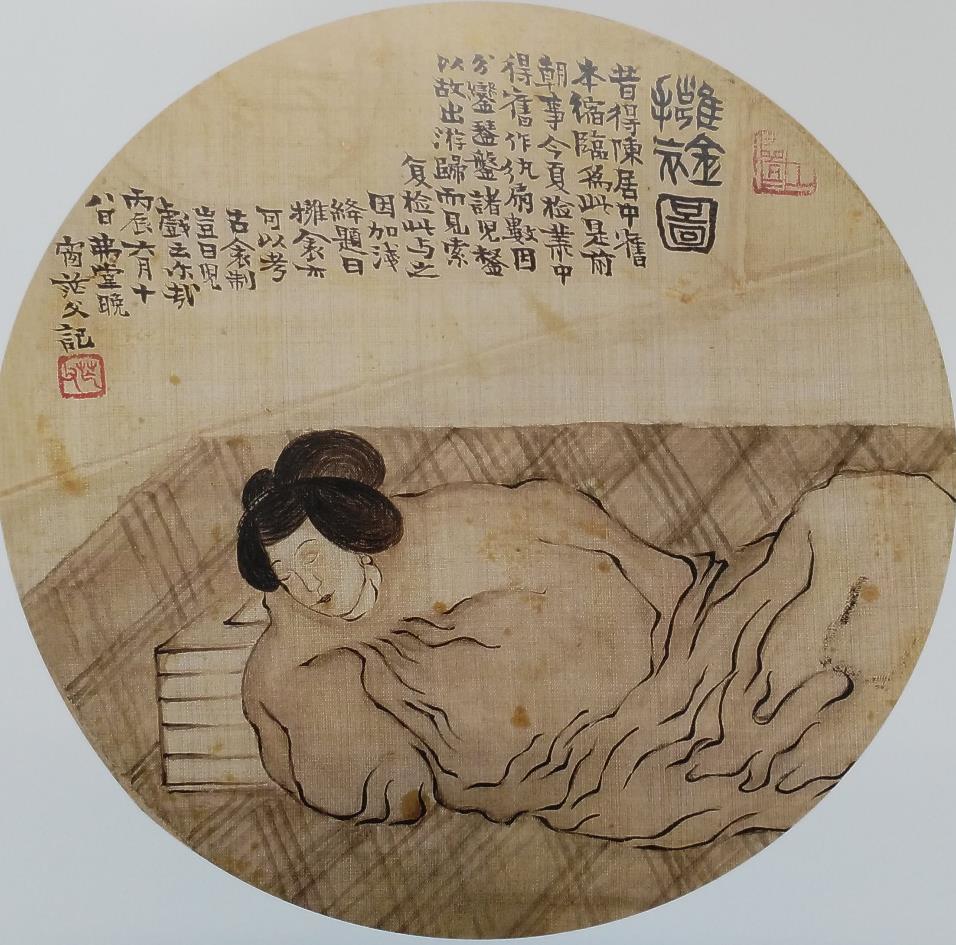 擁衾圖
昔得陳居中舊
本縮臨爲此是前
朝事今夏检業中
得舊作紈扇數因
分鑾盤諸兒
以故出游歸而見索
复检此与之
因加淺
絳題曰
擁衾亦
可以考
古衾制
豈曰兒
戲之尔哉
丙辰六月十
八日弗堂晚
窗茫父記
茫父